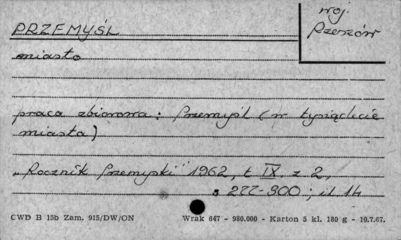 woj.
PRZEMYŚL Rzeszów
miasto
praca zbiorowa: Przemyśl (w tysiąclecie
miasta)
"Rocznik Przemyski" 1962, t IX. z 2,
s 277-300; il 14
CWD B 15b Zam. 915/DW/ON Wrak 647 - 980.000 - Karton 5 kl. 180 g - 10.7.67.